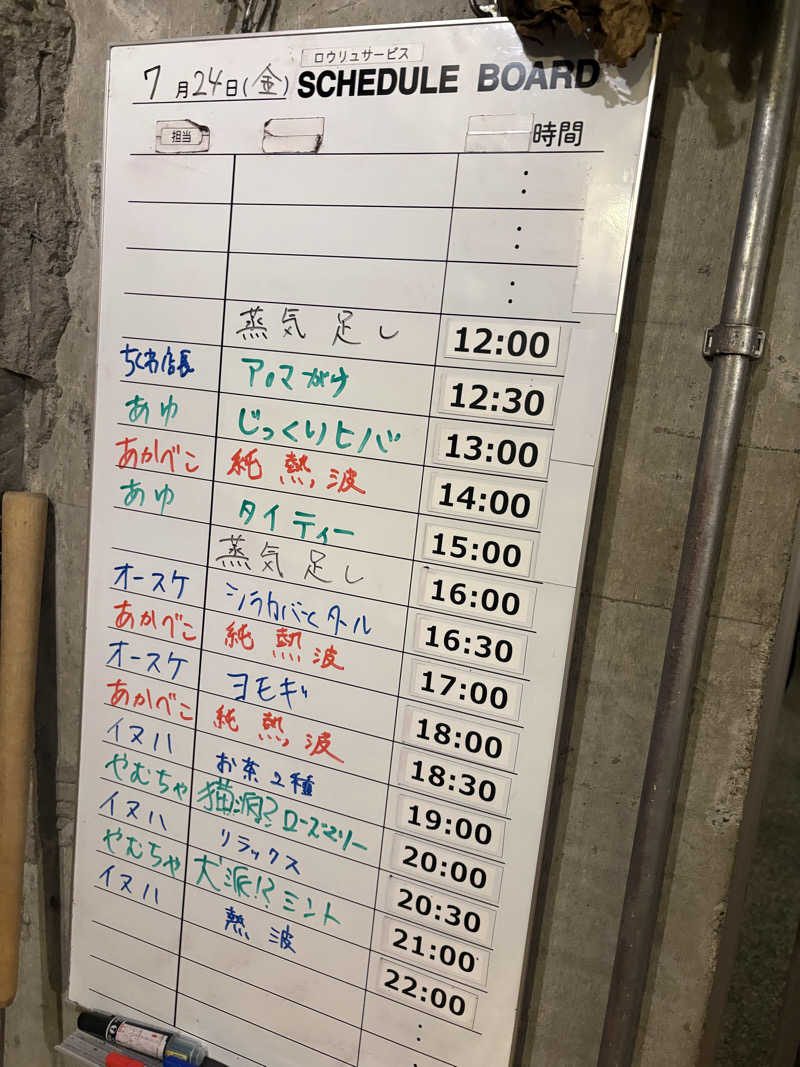 ロウリュサービス
7月24日(金) SCHEDULE BOARD
担当 時間
:
:
:
蒸気足し 12:00
ちくわ店長 アロマがけ 12:30
あゆ じっくりヒバ 13:00
あかべこ 純熱波 14:00
あゆ タイティー 15:00
蒸気足し 16:00
オースケ シラカバとタール 16:30
あかべこ 純熱波 17:00
オースケ ヨモギ 18:00
あかべこ 純熱波 18:30
イヌハ お茶2種 19:00
やむちゃ 猫派!? ローズマリー 20:00
イヌハ リラックス 20:30
やむちゃ 犬派!? ミント 21:00
イヌハ 熱波 22:00
:
: